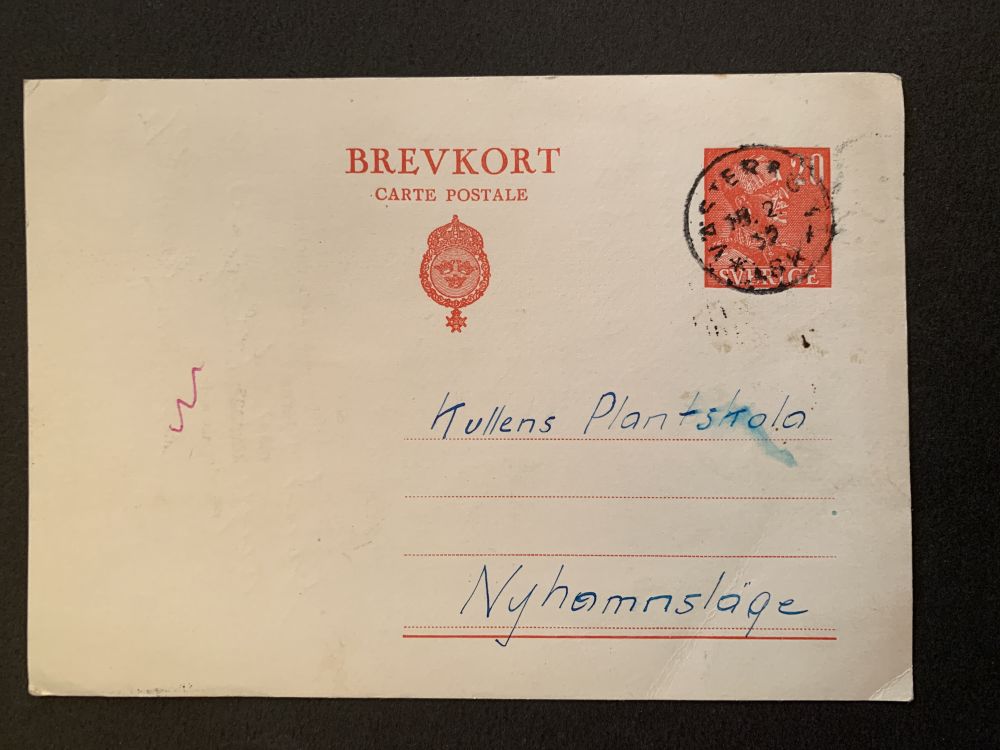 BREVKORT
CARTE POSTALE
20
SVERIGE
Kullens Plantskola
Nyhamnsläge